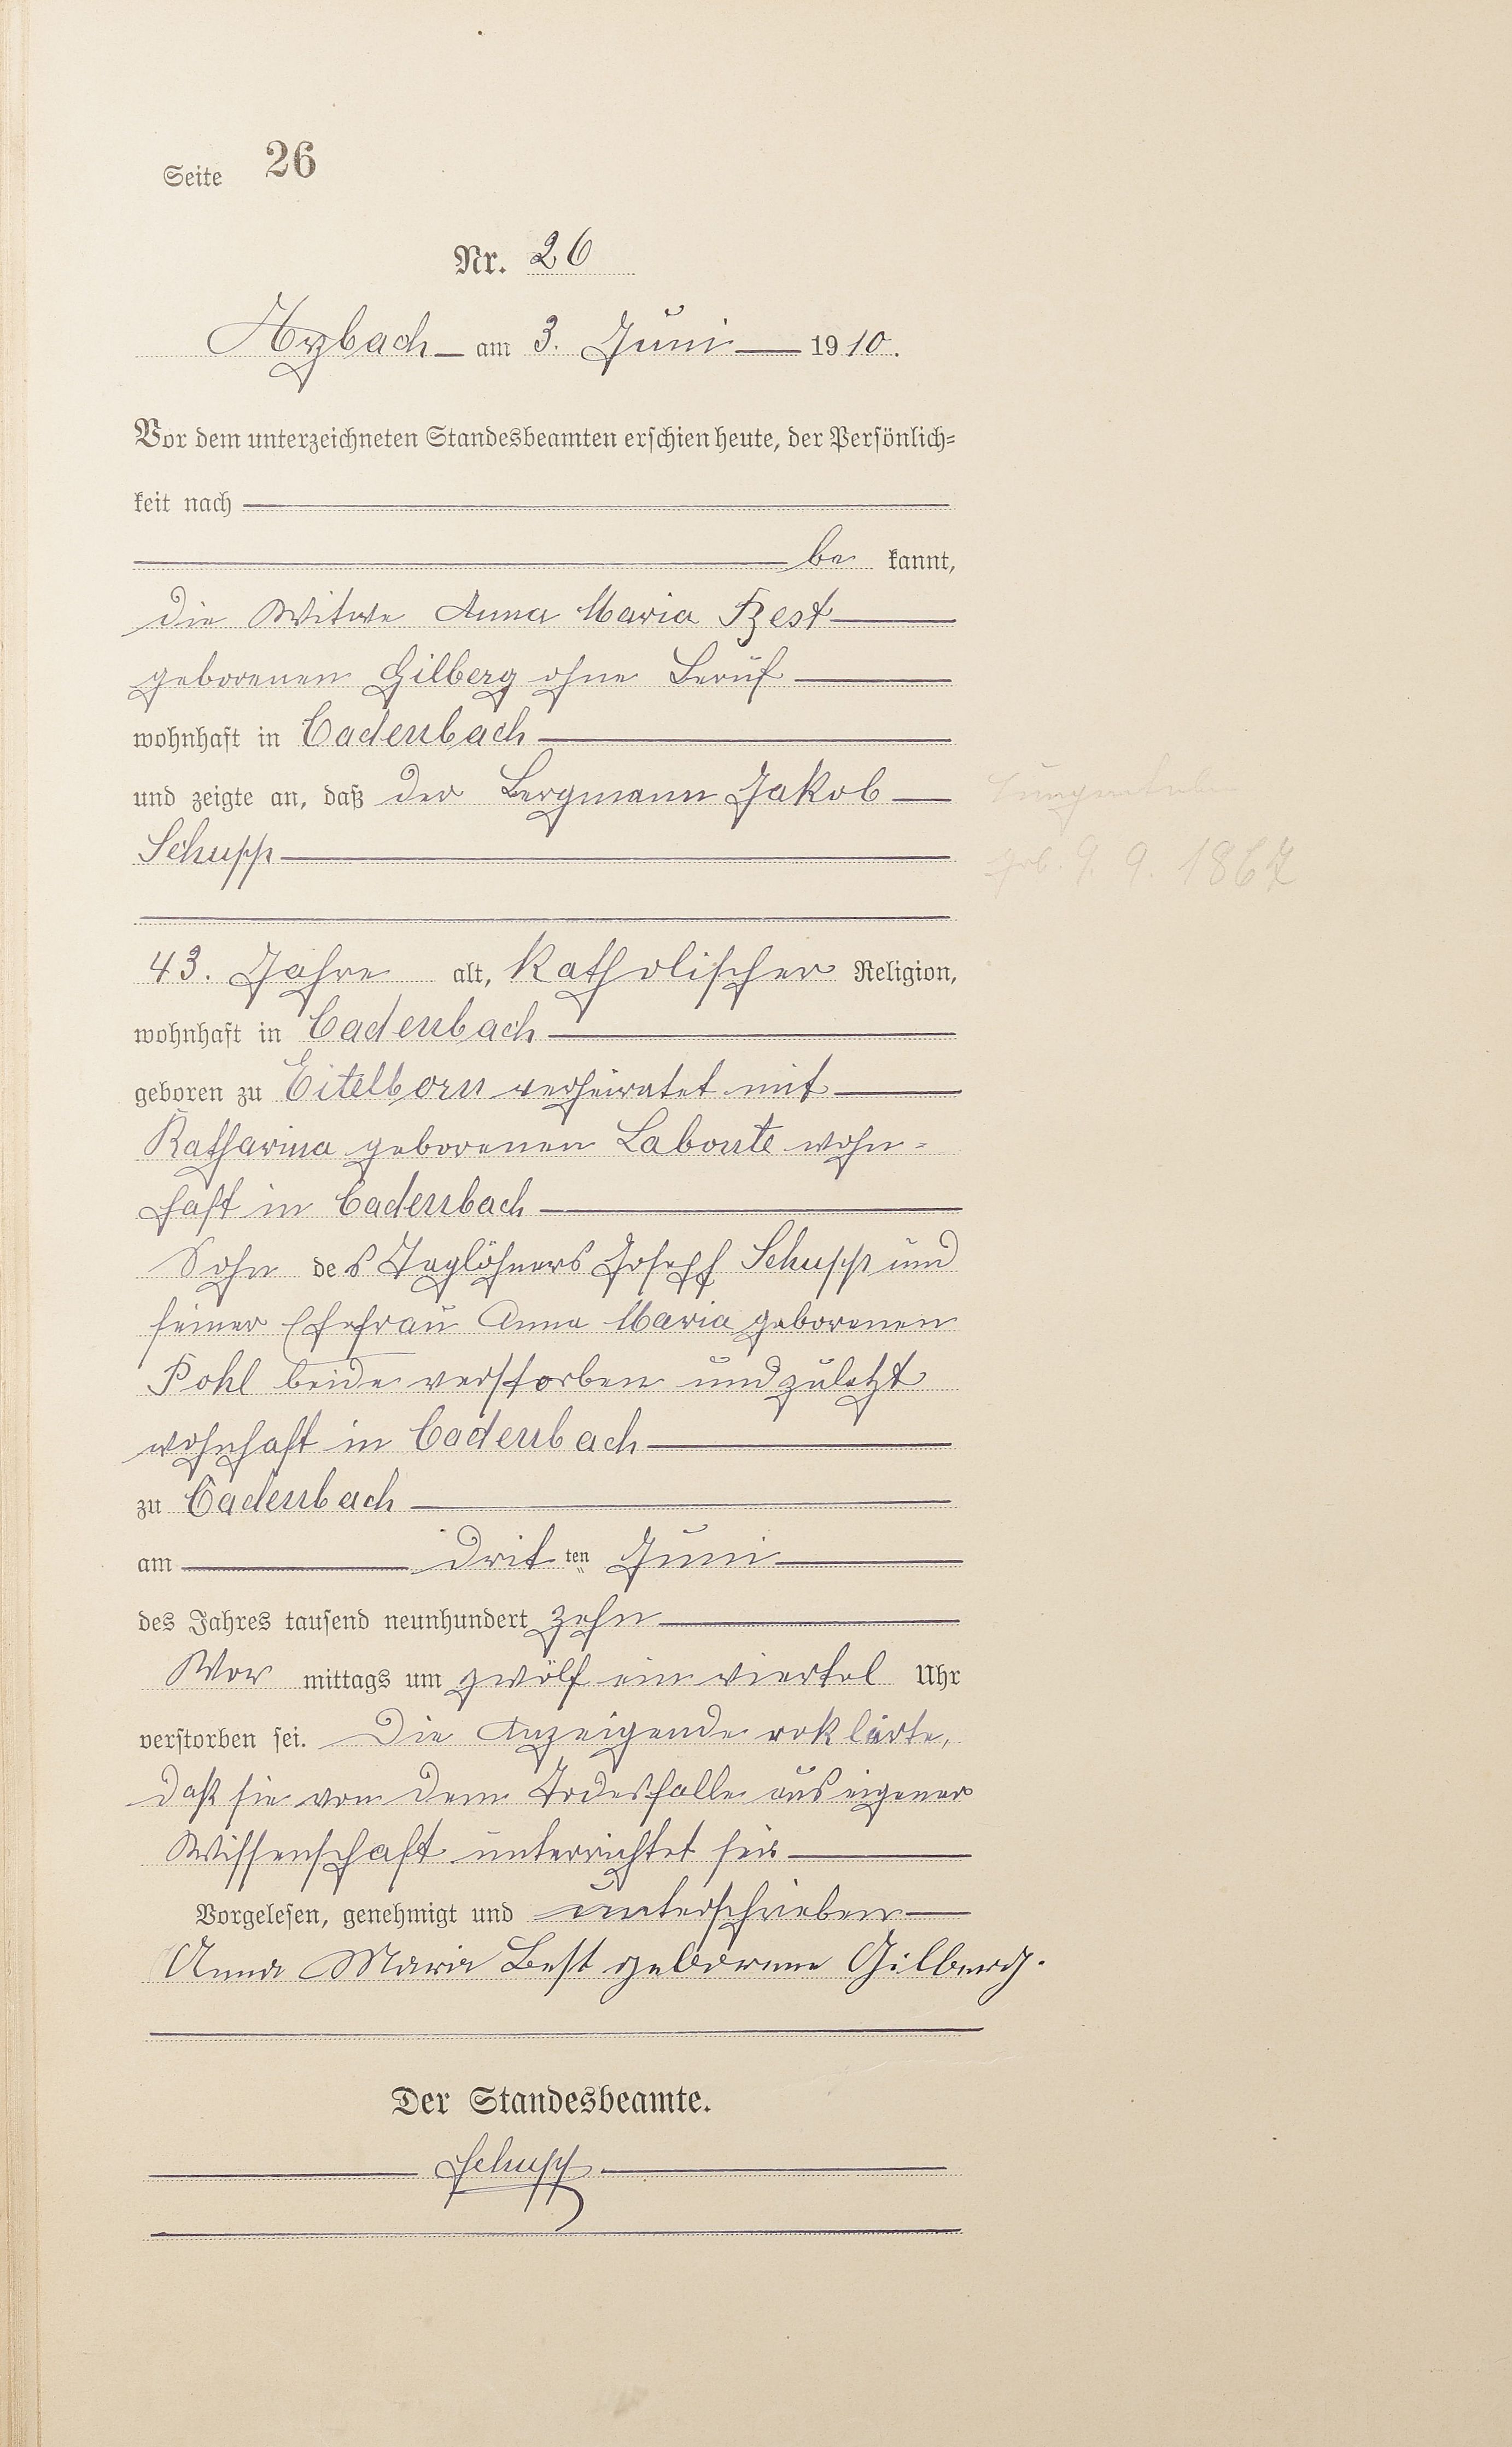 Seite 26
Nr. 26
Arzbach am 3. Juni 1910.
Vor dem unterzeichneten Standesbeamten erschien heute, der Persönlich-
keit nach
be kannt,
die Witwe Anna Maria Best
geborenen Gilberg ohne Beruf
wohnhaft in Cadenbach
und zeigte an, daß der Bergmann Jakob
Schupp
geb. 9. 9. 1867
43. Jahre alt, katholischer Religion,
wohnhaft in Cadenbach
geboren zu Eitelborn verheiratet mit
Katharina geborenen Labonte wohn-
haft in Cadenbach
Sohn des Taglöhners Joseph Schupp und
seiner Ehefrau Anna Maria geborenen
Pohl beide verstorben und zuletzt
wohnhaft in Cadenbach
zu Cadenbach
am dritten Juni
des Jahres tausend neunhundert zehn
Vor mittags um zwölf ein viertel Uhr
verstorben sei. Die Anzeigende erklärte,
daß sie von dem Todesfalle aus eigener
Wissenschaft unterrichtet sei
Vorgelesen, genehmigt und unterschrieben
Anna Maria Best geborene Gilberg.
Der Standesbeamte.
Schupp